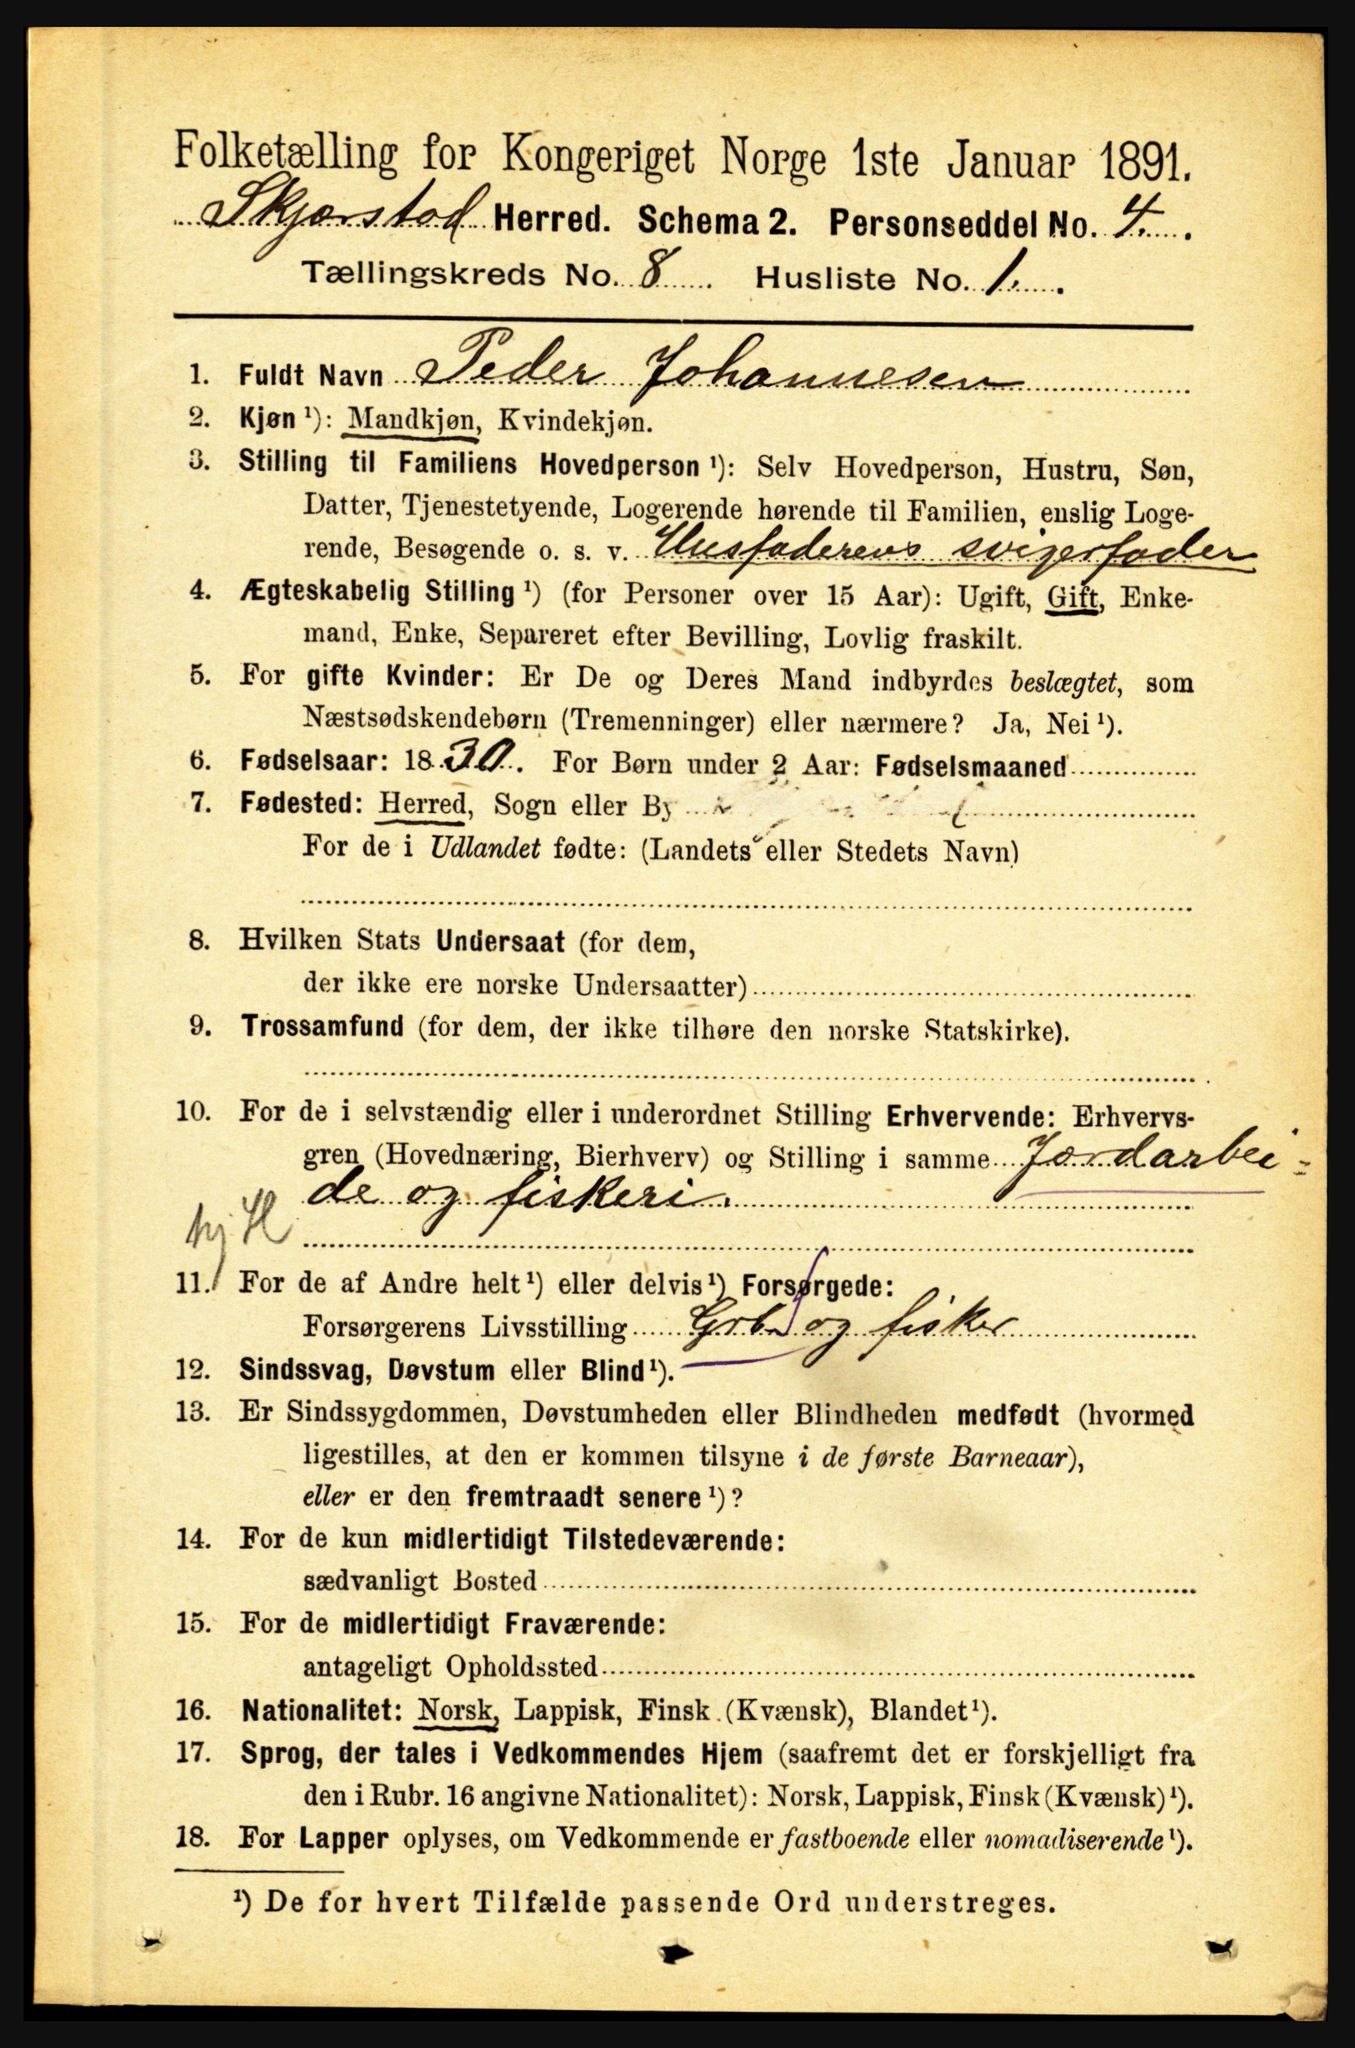 Folketælling for Kongeriget Norge 1ste Januar 1891.
Skjærstad Herred. Schema 2. Personseddel No. 4.
Tællingskreds No. 8 Husliste No. 1.
1. Fuldt Navn Peder Johannesen
2. Kjøn ¹): Mandkjøn, Kvindekjøn.
3. Stilling til Familiens Hovedperson ¹): Selv Hovedperson, Hustru, Søn,
Datter, Tjenestetyende, Logerende hørende til Familien, enslig Loge-
rende, Besøgende o. s. v. Husfaderens svigerfader
4. Ægteskabelig Stilling ¹) (for Personer over 15 Aar): Ugift, Gift, Enke-
mand, Enke, Separeret efter Bevilling, Lovlig fraskilt.
5. For gifte Kvinder: Er De og Deres Mand indbyrdes beslægtet, som
Næstsødskendebørn (Tremenninger) eller nærmere? Ja, Nei ¹).
6. Fødselsaar: 1830. For Børn under 2 Aar: Fødselsmaaned
7. Fødested: Herred, Sogn eller By
For de i Udlandet fødte: (Landets eller Stedets Navn)
8. Hvilken Stats Undersaat (for dem,
der ikke ere norske Undersaatter)
9. Trossamfund (for dem, der ikke tilhøre den norske Statskirke).
10. For de i selvstændig eller i underordnet Stilling Erhvervende: Erhvervs-
gren (Hovednæring, Bierhverv) og Stilling i samme Jordarbei-
de og fiskeri.
11. For de af Andre helt ¹) eller delvis ¹) Forsørgede:
Forsørgerens Livsstilling Grb. og fisker
12. Sindssvag, Døvstum eller Blind ¹).
13. Er Sindssygdommen, Døvstumheden eller Blindheden medfødt (hvormed
ligestilles, at den er kommen tilsyne i de første Barneaar),
eller er den fremtraadt senere ¹)?
14. For de kun midlertidigt Tilstedeværende:
sædvanligt Bosted
15. For de midlertidigt Fraværende:
antageligt Opholdssted
16. Nationalitet: Norsk, Lappisk, Finsk (Kvænsk), Blandet ¹).
17. Sprog, der tales i Vedkommendes Hjem (saafremt det er forskjelligt fra
den i Rubr. 16 angivne Nationalitet): Norsk, Lappisk, Finsk (Kvænsk) ¹).
18. For Lapper oplyses, om Vedkommende er fastboende eller nomadiserende ¹).
¹) De for hvert Tilfælde passende Ord understreges.